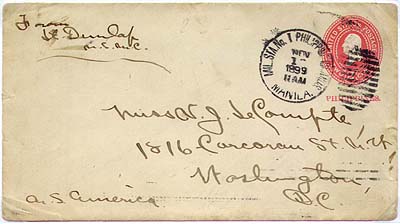 From
Dunlap
U.S.M.C.
MIL. STA. No. 1 PHILIPPINE ISLANDS
NOV
1
1899
11 AM
MANILA.
UNITED STATES POSTAGE
PHILIPPINES.
Miss W. J. LeCompte,
1816 Corcoran St. N.W.
Washington,
D.C.
U.S. America